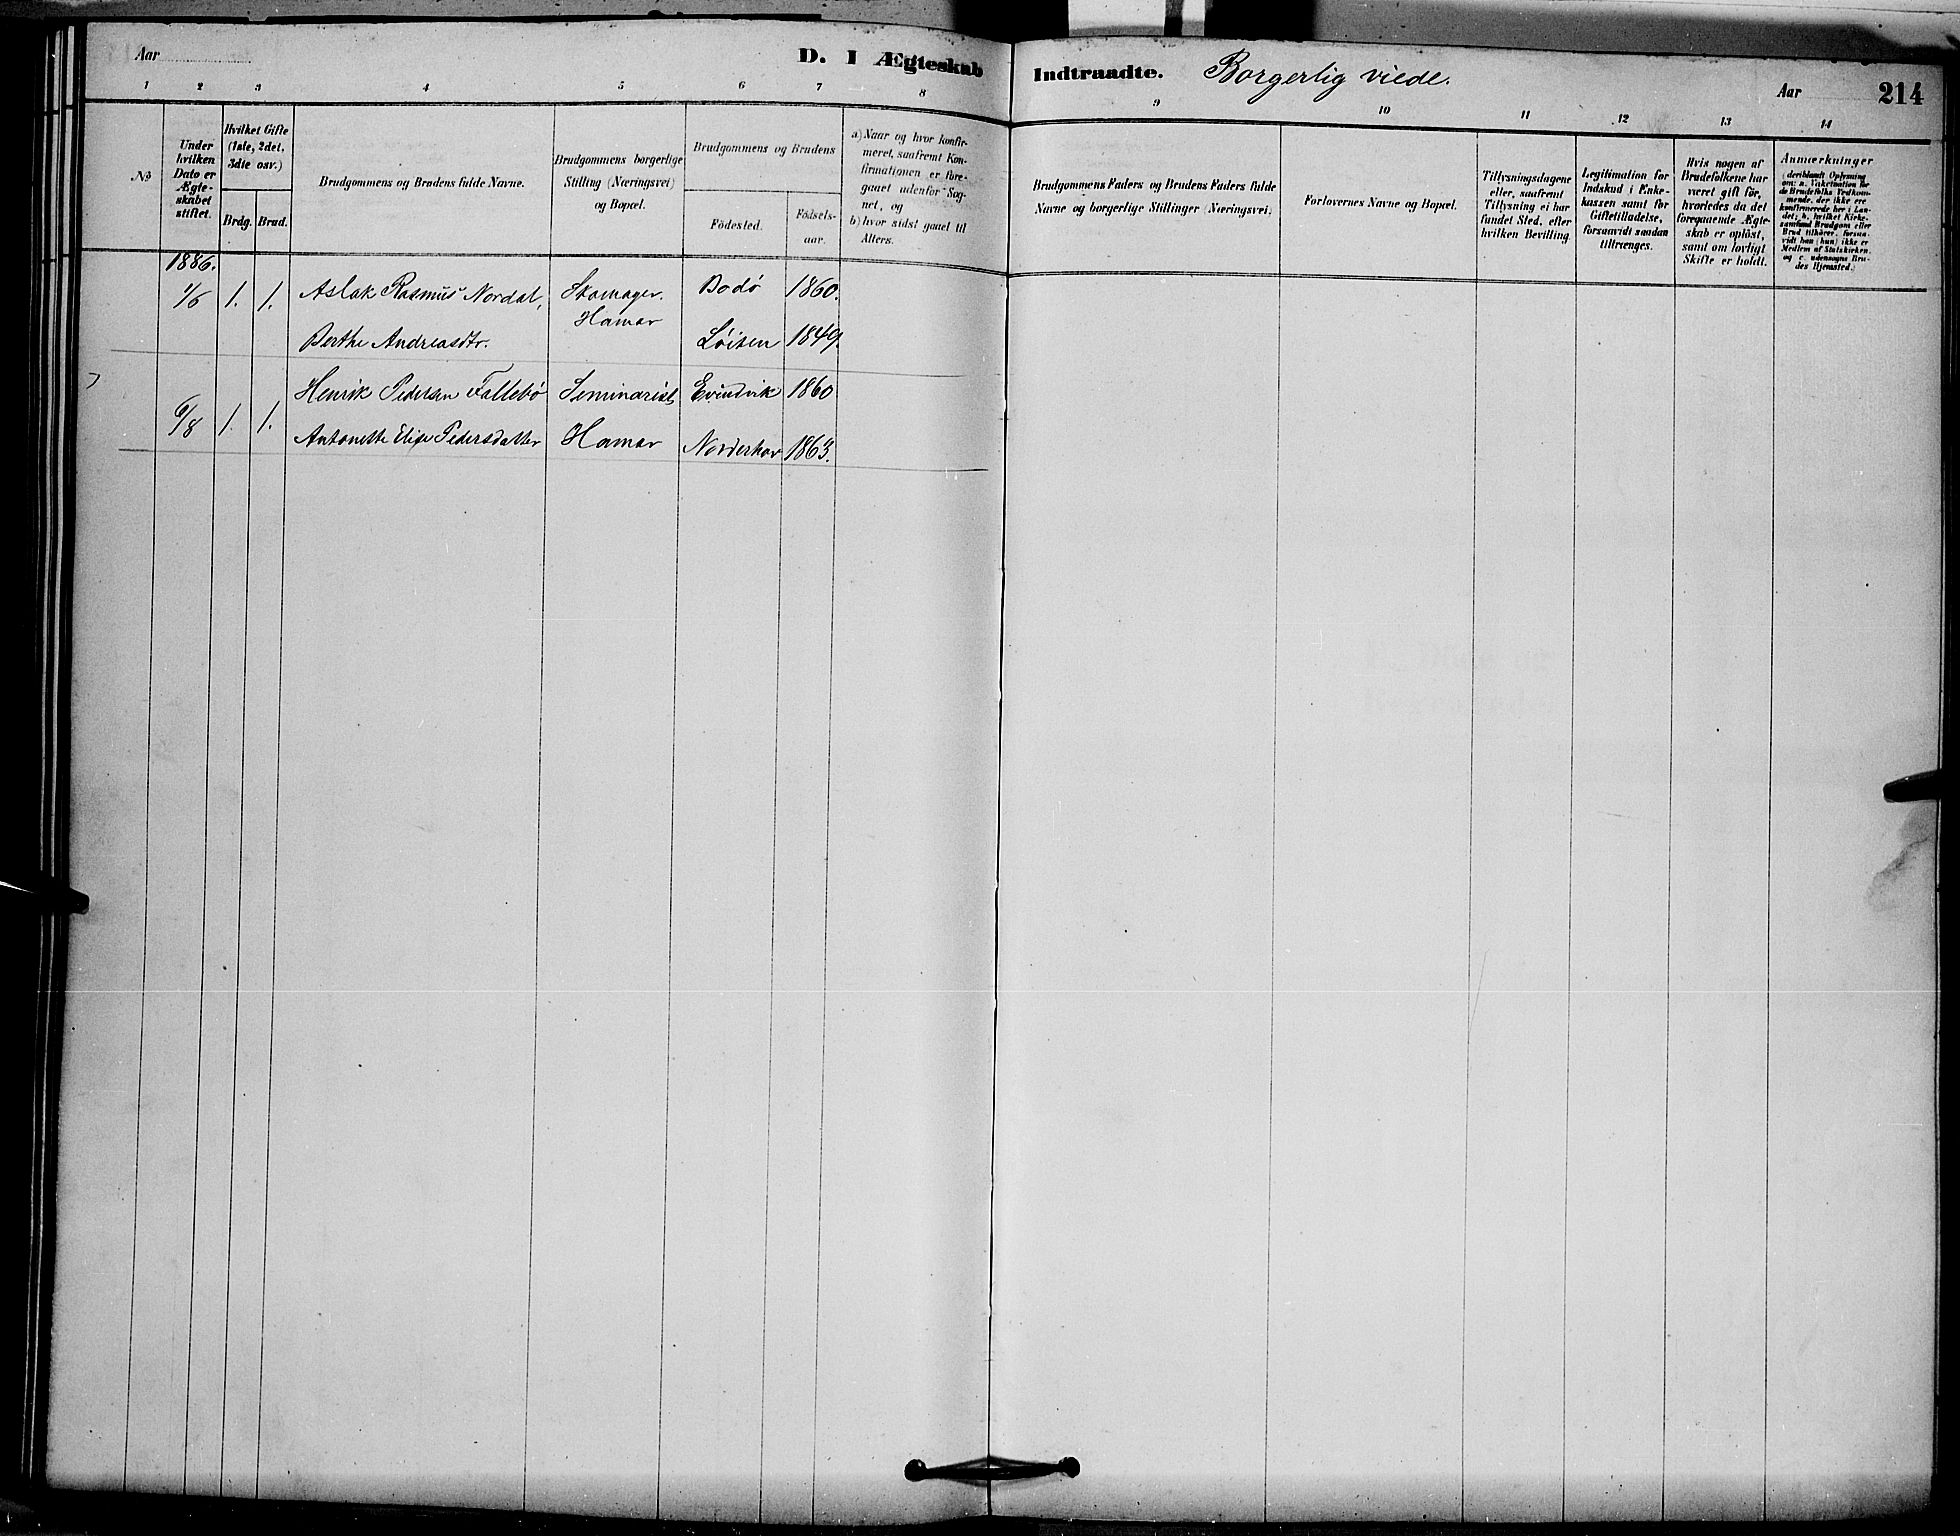 Aar
D. I Ægteskab Indtraadte. Borgerlig viede.
Aar
214
1 2 3 4 5 6 7 8 9 10 11 12 13 14
№
Under
hvilken
Dato er
Ægte-
skabet
stiftet.
Hvilket Gifte
(1ste, 2det,
3die osv.)
Brdg. Brud.
Brudgommens og Brudens fulde Navne.
Brudgommens borgerlige
Stilling (Næringsvei)
og Bopæl.
Brudgommens og Brudens
Födested.
Födsels-
aar.
a) Naar og hvor konfir-
meret, saafremt Kon-
firmationen er fore-
gaaet udenfor Sog-
net, og
b) hvor sidst gaaet til
Alters.
Brudgommens Faders og Brudens Faders fulde
Navne og borgerlige Stillinger (Næringsvei).
Forlovernes Navne og Bopæl.
Tillysningsdagene
eller, saafremt
Tillysning ei har
fundet Sted, efter
hvilken Bevilling.
Legitimation for
Indskud i Enke-
kassen samt for
Giftetilladelse,
forsaavidt saadan
tiltrænges.
Hvis nogen af
Brudefolkene har
været gift för,
hvorledes da det
foregaaende Ægte-
skab er oplöst,
samt om lovligt
Skifte er holdt.
Anmærkninger
(deriblandt Oplysning
om: a. Vakcination for
de Brudefolks Vedkom-
mende, der ikke ere
konfirmerede her i Lan-
det; b. hvilket Kirke-
samfund Brudgom eller
Brud tilhörer, forsaa-
vidt han (hun) ikke er
Medlem af Statskirken.
og c. udensogns Bru-
des Hjemsted.)
1886.
1/6 1. 1. Aslak Rasmus Nordal, Skomager. Bodø 1860.
Hamar
Berthe Andreasdtr. Løiten 1849.
Henrik Pedersen Fallebø Seminarist Evindvik 1860
6/8 1. 1.
Antonette Elise Pedersdatter Hamar Norderhov 1863.